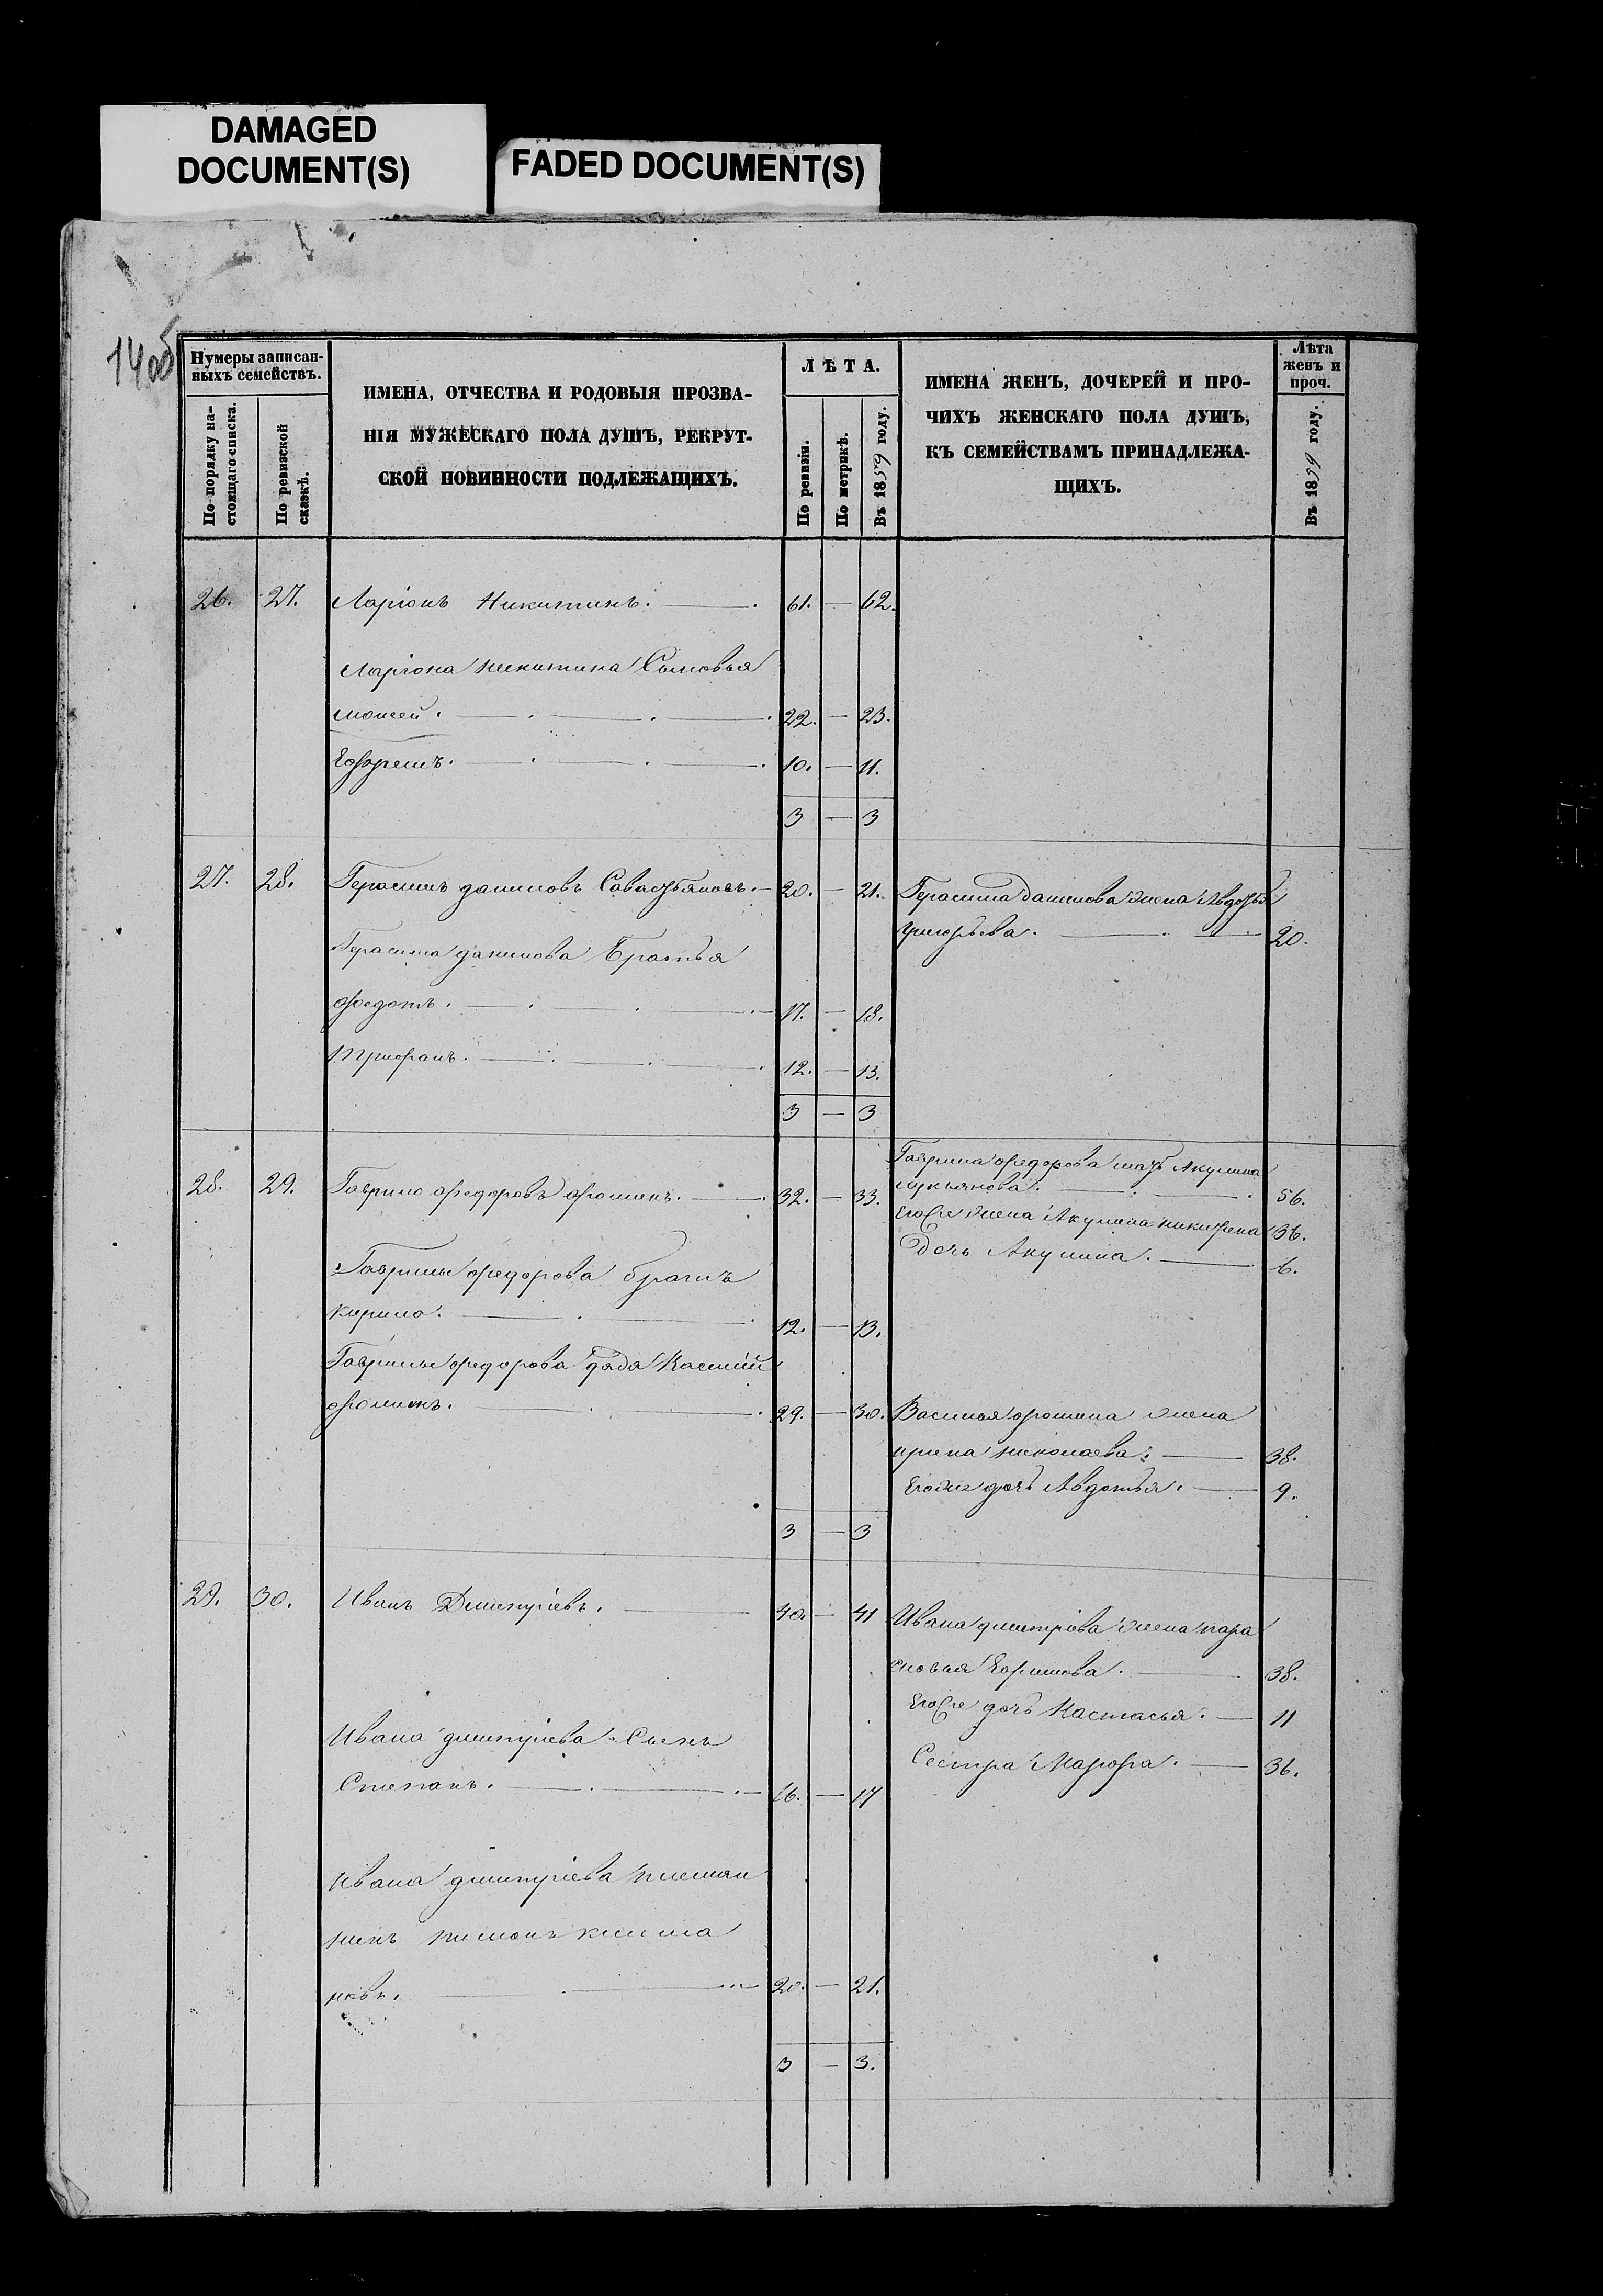 DAMAGED
DOCUMENT(S)
FADED DOCUMENT(S)
14об
Нумеры записан-
ныхъ семействъ.
По порядку на-
стоящаго списка.
По ревизской
сказкѣ.
ИМЕНА, ОТЧЕСТВА И РОДОВЫЯ ПРОЗВА-
НІЯ МУЖЕСКАГО ПОЛА ДУШЪ, РЕКРУТ-
СКОЙ ПОВИННОСТИ ПОДЛЕЖАЩИХЪ.
ЛѢТА.
По ревизіи.
По метрикѣ.
Въ 1859 году.
ИМЕНА ЖЕНЪ, ДОЧЕРЕЙ И ПРО-
ЧИХЪ ЖЕНСКАГО ПОЛА ДУШЪ,
КЪ СЕМЕЙСТВАМЪ ПРИНАДЛЕЖА-
ЩИХЪ.
Лѣта
женъ и
проч.
Въ 1859 году.
26. 27. Ларіонъ Никитинъ. — 61. — 62.
Ларіона никитина Сыновья
моисей. — 22. — 23.
Ефремъ. — 10. — 11.
3 — 3
27. 28. Герасимъ даниловъ Савастьяновъ. — 20. — 21. Герасима данилова жена Авдотья
григорьева. — 20.
Герасима данилова Братья
федотъ. — 17. — 18.
трифанъ. — 12. — 13.
3 — 3
Гаврила федорова мать Акулина
28. 29. Гаврило федоровъ фоминъ. — 32. — 33. лукьянова. — 56.
Егоже жена Акулина 36.
Дочь Акулина. — 6.
Гаврилы федорова братъ
кирило. — 12. — 13.
Гаврилы федорова дядя Василій
фоминъ. — 29. — 30. Василья фомина жена
ирина николаева. — 38.
Егоже дочь Авдотья. — 9.
3 — 3
29. 30. Иванъ Дмитріевъ. — 40. — 41 Ивана дмитріева жена пара
сковья Ефимова. — 38.
Егоже дочь Настасья. — 11
Ивана дмитріева Сынъ
Сестра Марфа. — 36.
Степанъ. — 16. — 17
Ивана дмитріева племян
никъ
новъ. — 20. — 21.
3 — 3.